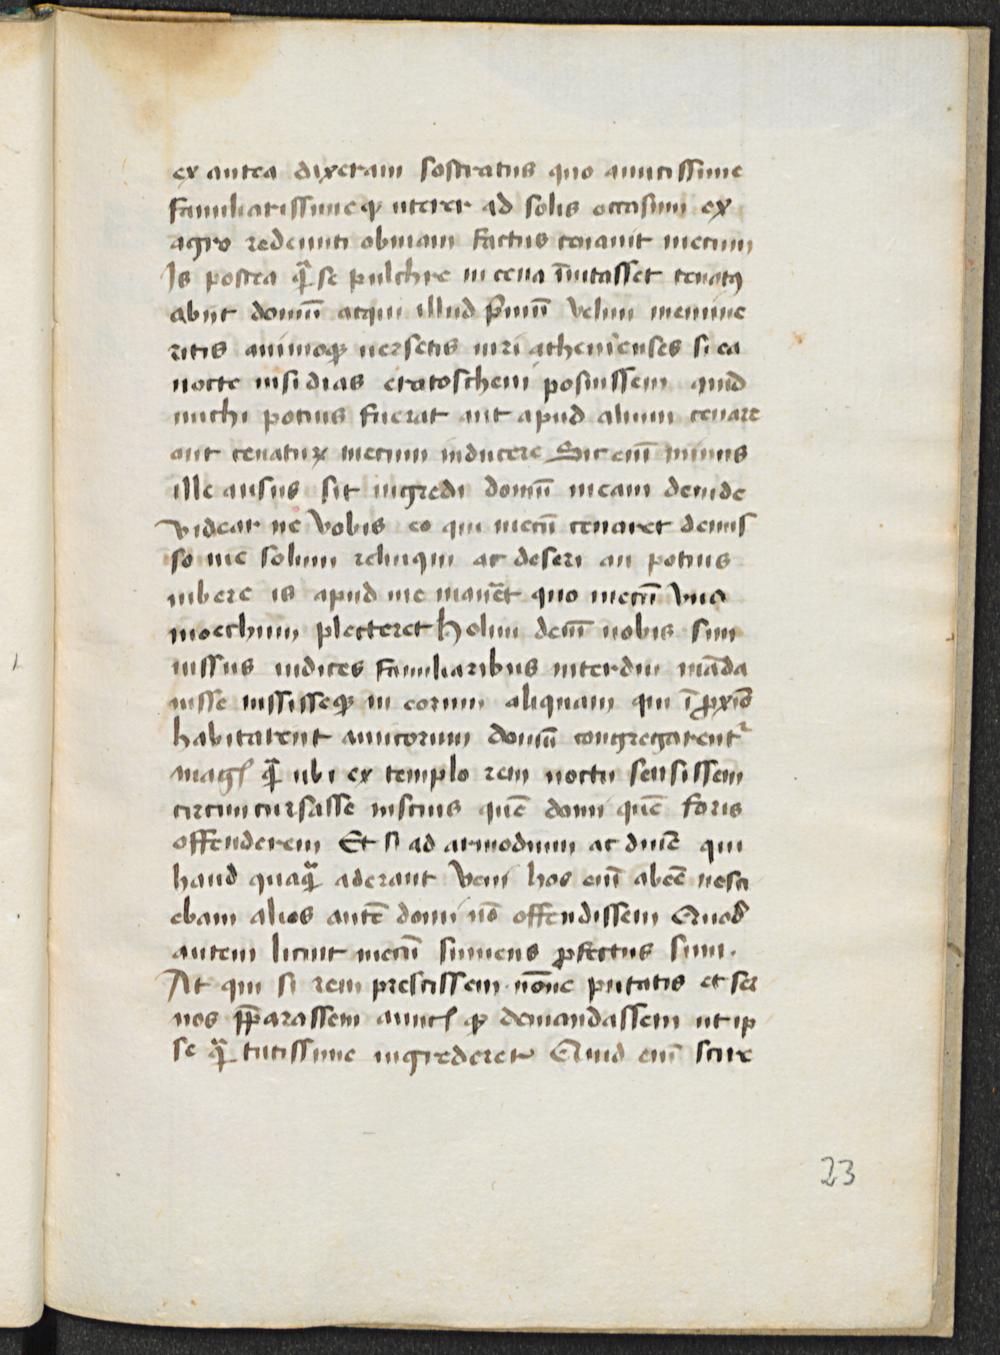 ex antea dixeram sostratus quo amicissime
familiarissimeqꝫ uterer ad solis occasum ex
agro redeunti obuiam factus cenauit mecum
Is postea qᷓ se pulchre in cena īuitasset cenatꝰ
abijt domū atqui illud p̄mū velim memine
ritis animoqꝫ uersetis uiri athenienses si ea
nocte insidias eratostheni posuissem quid
michi potius fuerat aut apud alium cenare
aut cenaturꝫ mecum inducere Sic eniī minus
ille ausus sit ingredi domū meam deinde
videar ne vobis eo qui mecū cenaret demis
so me solum relinqui ac deseri an potius
iubere is apud me manēt quo mecū vna
moechum plecteret Holim deiū uobis sum
iussus iudices familiaribus interdiu māda
uisse iussisseqꝫ in eorum aliquam qui ī ꝓxīo
habitarent amicorum domū congregarent᷑
magꝭ qᷓ ubi ex templo rem noctu sensissem
circumcursasse inscius quē domi quē foris
offenderem Et si ad armodium ac dniē qui
haud quaqᷓ aderant veni hos eniī abeē nesci
ebam alios autē domi nō offendissem Quod
autem licuit mecū sumens ꝓfectus sum.
At qui si rem prescissem nōne putatis et ser
uos p̄pararassem amicꝭ qꝫ demandassem ut ip
se qᷓ tutissime ingrederet᷑ Quid eniī scire
23